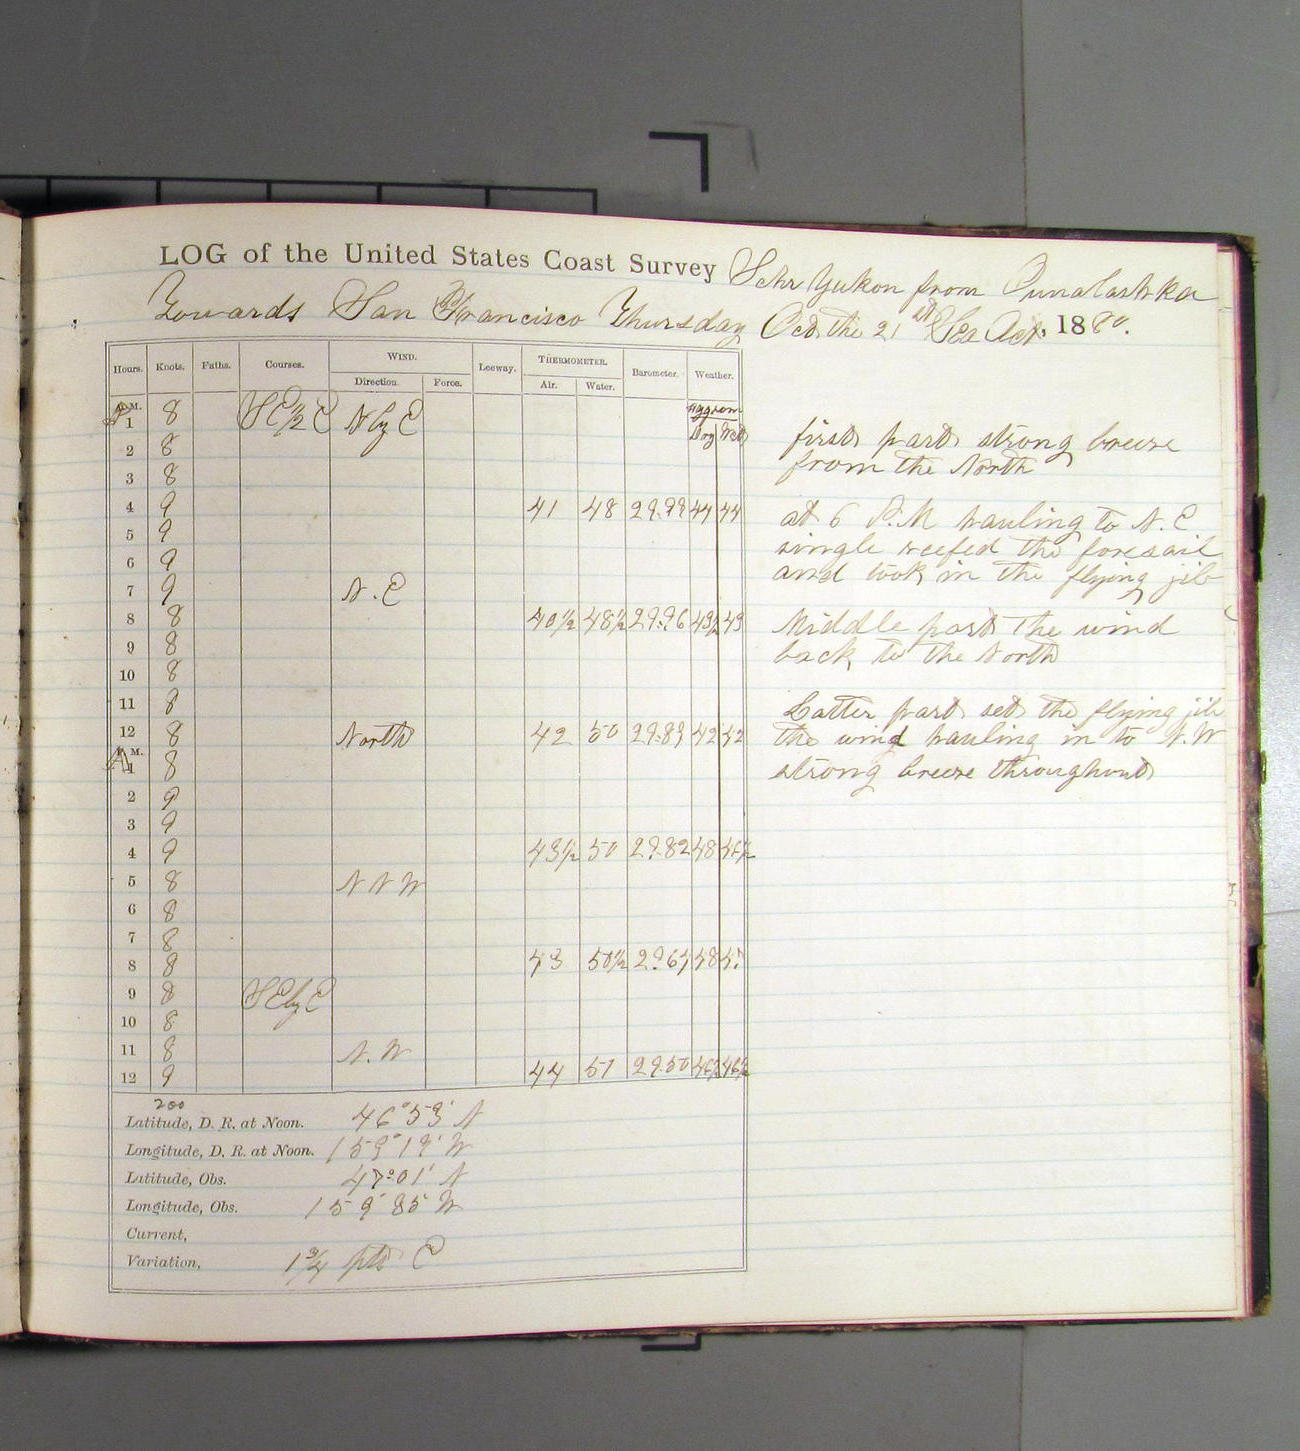 LOG of the United States Coast Survey Schr Yukon from Ounalashka
Towards San Francisco Thursday Oct. the 21st Sea Act. 1880.
Hours. Knots. Faths. Courses. WIND. Leeway. THERMOMETER. Barometer. Weather.
Direction. Force. Air. Water.
P.M. Hygrom
1 8 SE ½ E N by E Dry Wet
2 8
3 8
4 9 41 48 29.99 44 44
5 9
6 9
7 9 N.E
8 8 40½ 48½ 29.96 43½ 43
9 8
10 8
11 8
12 8 North 42 50 29.89 42 42
A.M.
1 8
2 9
3 9
4 9 43½ 50 29.82 48 46½
5 8 N N W
6 8
7 8
8 8 43 50½ 29.64 48 47
9 8 SE by E
10 8
11 8 N.W
12 9 44 51 29.50 46½ 46½
200
Latitude, D. R. at Noon. 46° 53' N
Longitude, D. R. at Noon. 159° 19' W
Latitude, Obs. 47° 01' N
Longitude, Obs. 159° 35' W
Current,
Variation, 1¾ pts E
first part strong breeze
from the North
at 6 P.M hauling to N.E
single reefed the foresail
and took in the flying jib
Middle part the wind
back to the North
Latter part set the flying jib
the wind hauling in to N.W
strong breeze throughout